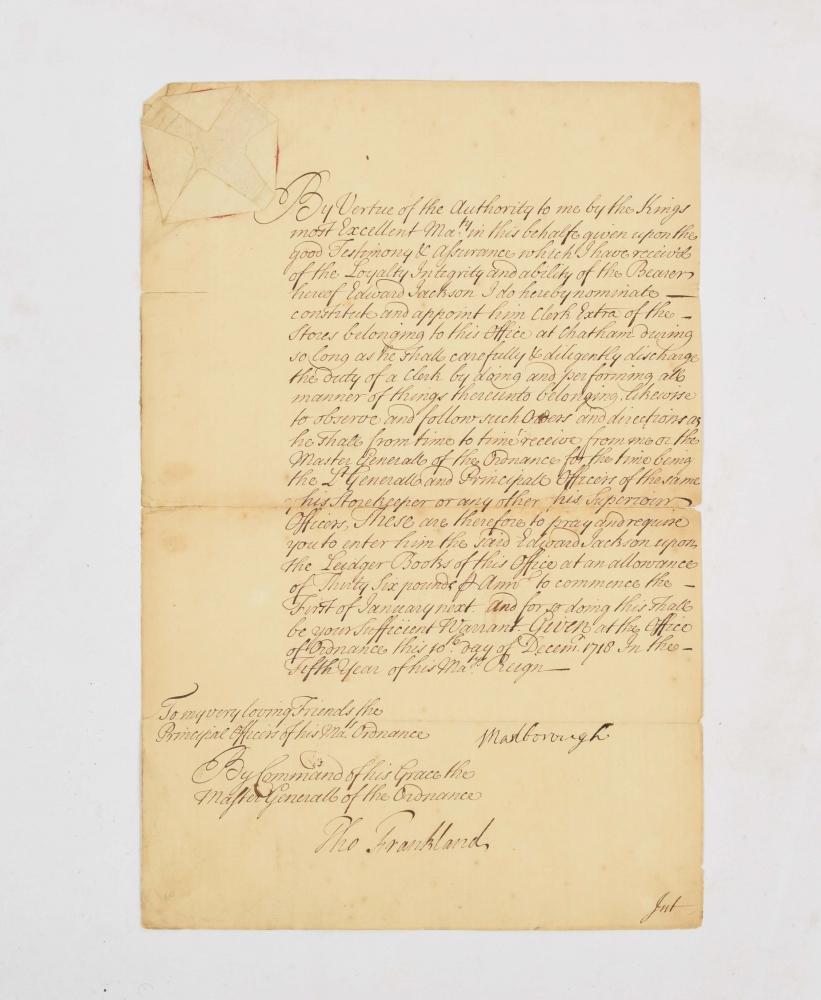 By Vertue of the Authority to me by the Kings
most Excellent Ma.ty in this behalfe given upon the
good Testimony & Assurance which I have receiv'd
of the Loyalty Integrity and ability of the Bearer
hereof Edward Jackson I do hereby nominate —
constitute and appoint him Clerk Extra of the —
Stores belonging to this Office at Chatham during
so long as he shall carefully & diligently discharge
the duty of a Clerk by doing and performing all
manner of things thereunto belonging, likewise
to observe and follow such Orders and directions as
he shall from time to time receive from me or the
Master Generall of the Ordnance for the time being
the L.t Generall and Principall Officers of the same
his Storekeeper or any other his Superiour
Officers, These are therefore to pray and require
you to enter him the said Edward Jackson upon
the Leidger Books of this Office at an allowance
of Thirty Six pounds ⅌ Ann.m to commence the —
First of January next and for so doing this shall
be your sufficient Warrant Given at the Office
of Ordnance this 10.th day of Decem.r 1718 In the —
Fifth Year of his Ma.ts Reign —
To my very loving Friends the
Principal Officers of his Ma.ts Ordnance
Marlborough
By Command of his Grace the
Master Generall of the Ordnance
Tho Frankland
Int